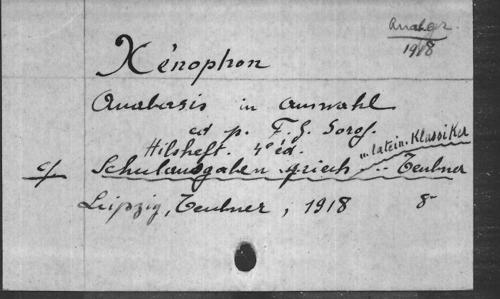 Analgr.
1918
Xénophon
Anabasis in Auswahl
ed p. F. G. Sorof.
Hilsheft. 4e éd.
u. latein. Klassiker
cf Schulausgaben griech ... Teubner
Leipzig, Teubner, 1918 8°